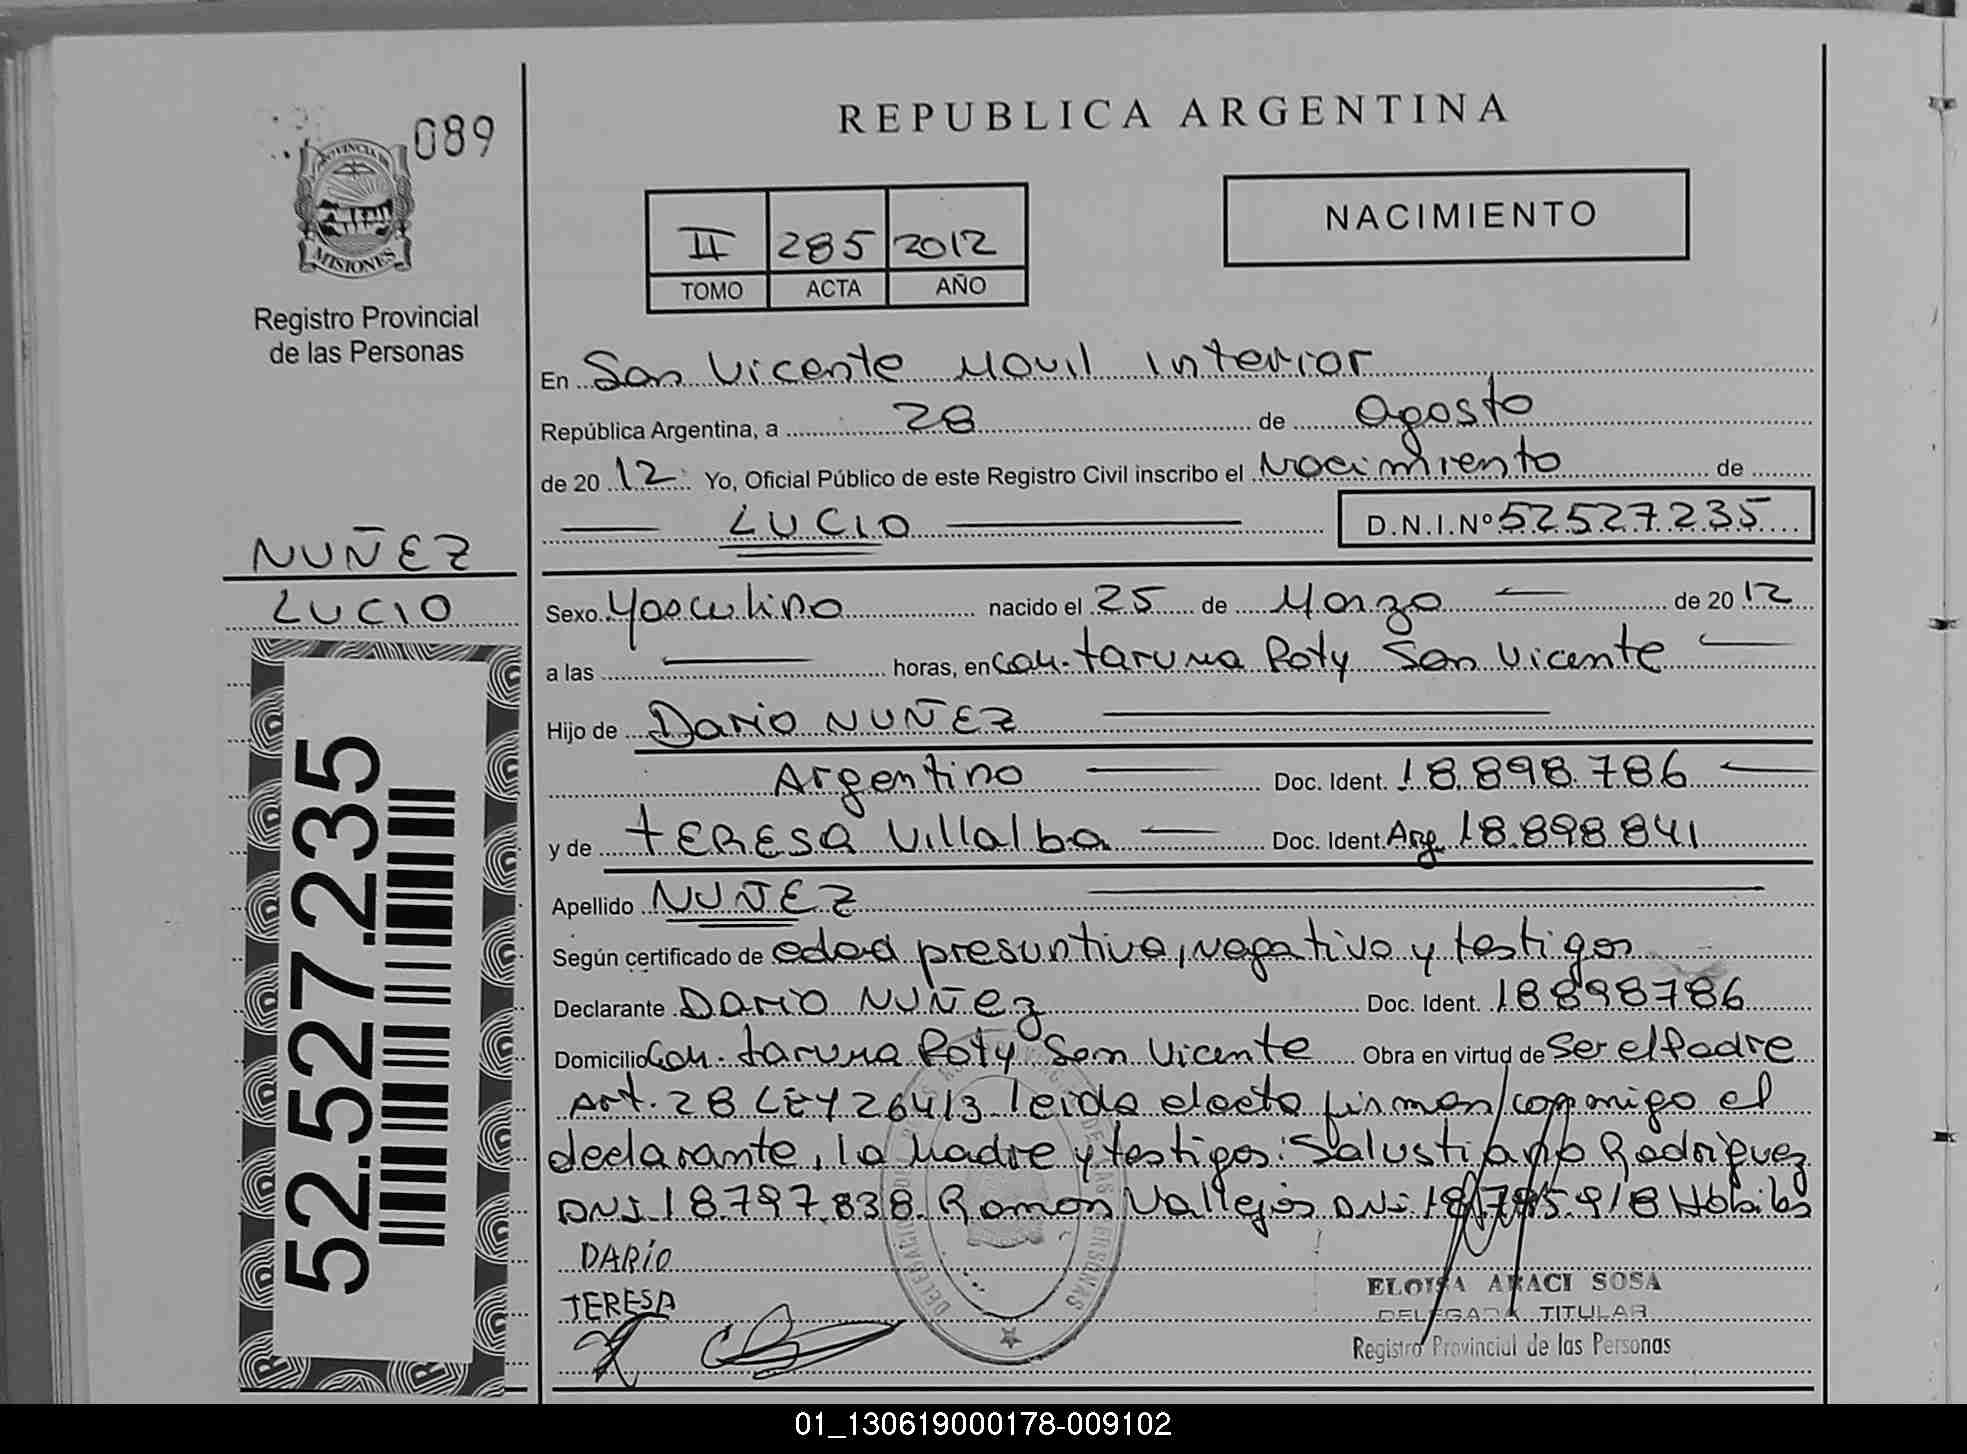 089
PROVINCIA DE
MISIONES
Registro Provincial
de las Personas
NUÑEZ
LUCIO
52.527.235
REPUBLICA ARGENTINA
II 285 2012
TOMO ACTA AÑO
NACIMIENTO
En San Vicente Movil Interior
República Argentina, a 28 de agosto
de 2012 Yo, Oficial Público de este Registro Civil inscribo el Nacimiento de
LUCIO D.N.I.Nº 52527235
Sexo Masculino nacido el 25 de Marzo de 2012
a las horas, en Com. taruma Poty San Vicente
Hijo de Dario NUÑEZ
Argentino Doc. Ident. 18.898.786
y de TERESA Villalba Doc. Ident. Arg. 18.898.841
Apellido NUÑEZ
Según certificado de edad presuntiva, negativo y testigos
Declarante Dario NUÑEZ Doc. Ident. 18898786
Domicilio Com. taruma Poty San Vicente Obra en virtud de Ser el Padre
Art. 28 LEY 26413 leida el acta firman conmigo el
declarante, la Madre y testigos: Salustiano Rodriguez
DNI 18.797.838 Ramon Vallejos DNI 18.795.918 Habiles
DARIO
TERESA
ELOISA ARACI SOSA
DELEGADA TITULAR
Registro Provincial de las Personas
01_130619000178-009102